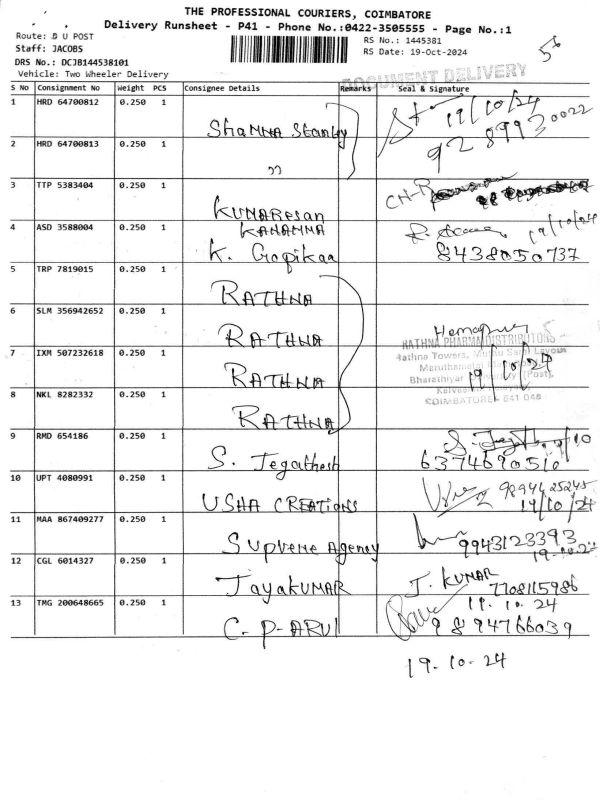 THE PROFESSIONAL COURIERS, COIMBATORE
Delivery Runsheet - P41 - Phone No.:0422-3505555 - Page No.:1
Route: B U POST
RS No.: 1445381
Staff: JACOBS
RS Date: 19-Oct-2024
DRS No.: DCJB144538101
Vehicle: Two Wheeler Delivery
DOCUMENT DELIVERY
S No Consignment No Weight PCS Consignee Details Remarks Seal & Signature
1 HRD 64700812 0.250 1
Shamna Stanley
19/10/24
2 HRD 64700813 0.250 1
"
3 TTP 5383404 0.250 1
KUMAResan
4 ASD 3588004 0.250 1
KANAMMA
19/10/24
K. Gopikaa
8438050737
5 TRP 7819015 0.250 1
RATHNA
6 SLM 356942652 0.250 1
RATHNA
RATHNA PHARMA DISTRIBUTORS
7 IXM 507232618 0.250 1
Rathna Towers,
RATHNA
19/10/24
Bharathiyar
8 NKL 8282332 0.250 1
COIMBATORE - 641 046
RATHNA
9 RMD 654186 0.250 1
S. Jegathesh
6374690510
10 UPT 4080991 0.250 1
9894625245
USHA CREATIONS
19/10/24
11 MAA 867409277 0.250 1
Supreme Agency
9943123393
19.10.24
12 CGL 6014327 0.250 1
JayaKUMAR
J. KUMAR
7708115986
13 TMG 200648665 0.250 1
19.10.24
C-P-ARUl
9894766039
19-10-24